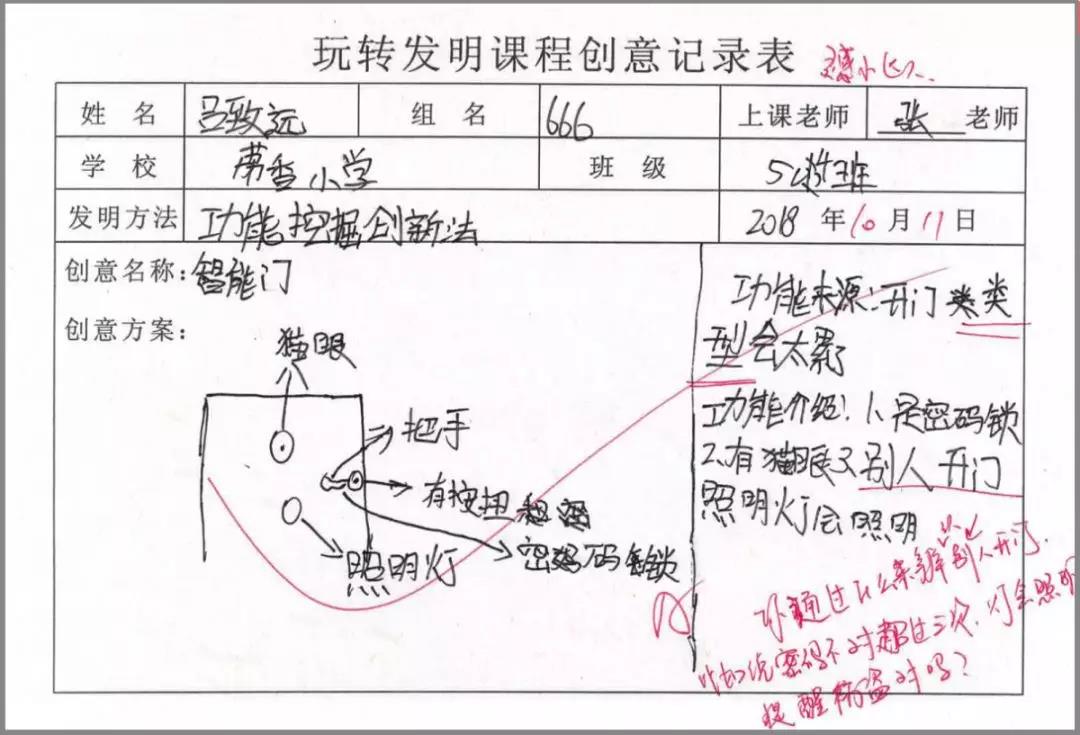 玩转发明课程创意记录表
姓 名 吕致远 组 名 666 上课老师 张 老师
学 校 荣香小学 班 级 5 班
发明方法 功能挖掘创新法 2018 年10月11日
创意名称: 智能门
创意方案:
猫眼
把手
有按扭
密码锁
照明灯
功能来源:开门类
型会太累
功能介绍:1、是密码锁
2、有猫眼 3别人开门
照明灯会照明
你通过什么来辨别人开门.
比如说密码不对超过三次,灯会照明
提醒防盗对吗?